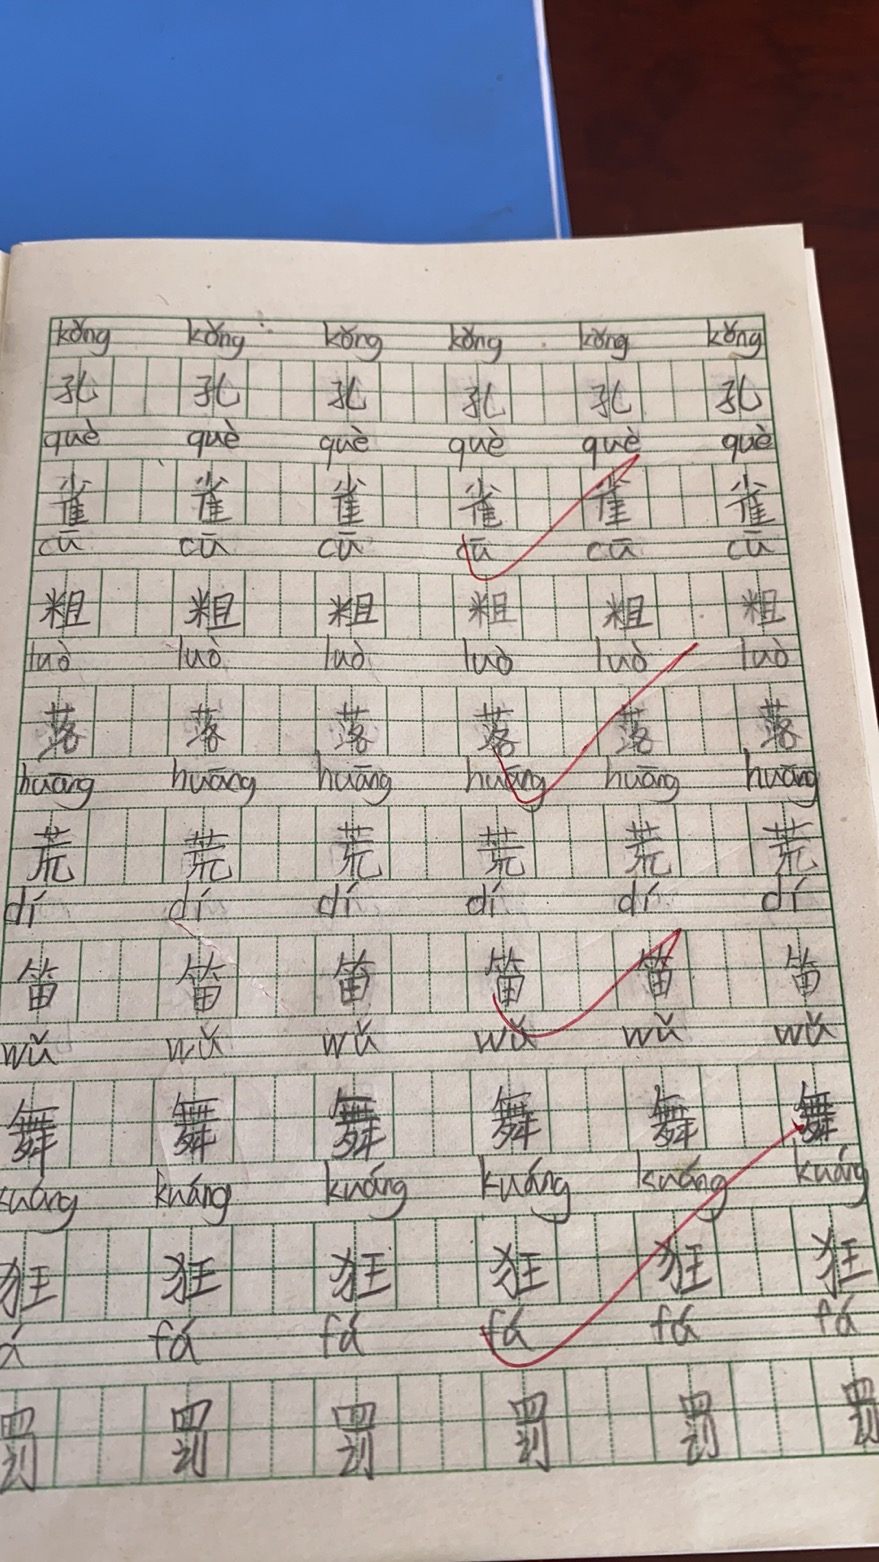 kǒng kǒng kǒng kǒng kǒng kǒng
孔 孔 孔 孔 孔 孔
què què què què què què
雀 雀 雀 雀 雀 雀
cū cū cū cū cū cū
粗 粗 粗 粗 粗 粗
luò luò luò luò luò luò
落 落 落 落 落 落
huāng huāng huāng huāng huāng huāng
荒 荒 荒 荒 荒 荒
dí dí dí dí dí dí
笛 笛 笛 笛 笛 笛
wǔ wǔ wǔ wǔ wǔ wǔ
舞 舞 舞 舞 舞 舞
kuáng kuáng kuáng kuáng kuáng kuáng
狂 狂 狂 狂 狂 狂
á fá fá fá fá fá
罚 罚 罚 罚 罚 罚